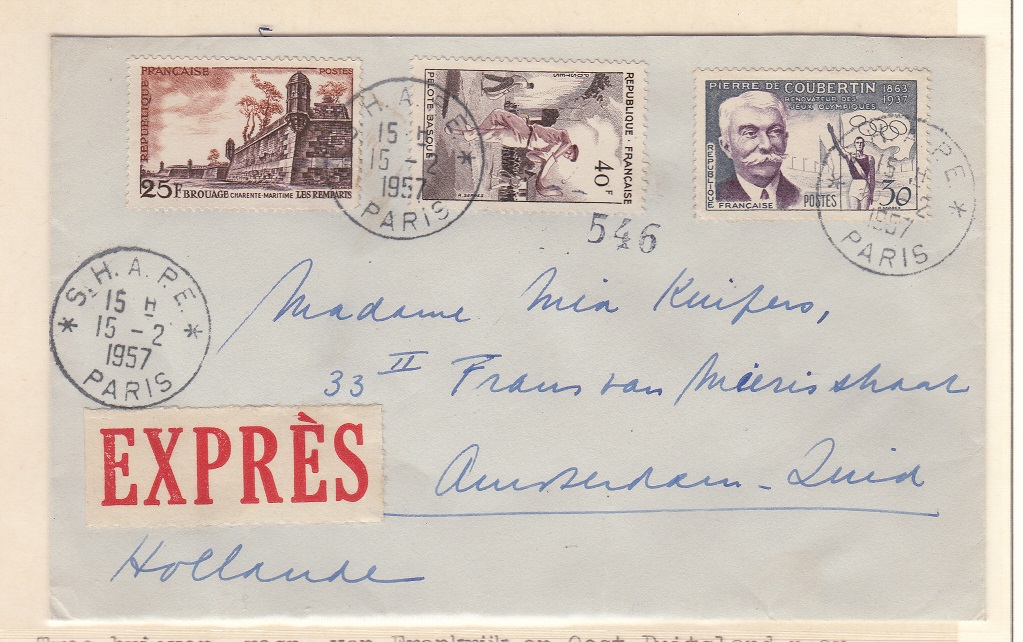 RÉPUBLIQUE FRANÇAISE POSTES
25F BROUAGE CHARENTE-MARITIME LES REMPARTS
S.H.A.P.E.
15 H
15 - 2
1957
PARIS
POSTES
PELOTE BASQUE
REPUBLIQUE FRANÇAISE
40F
PIERRE DE COUBERTIN 1863
RÉNOVATEUR DES 1937
JEUX OLYMPIQUES
REPUBLIQUE
FRANÇAISE POSTES 30F
S.H.A.P.E.
15 H
15 - 2
1957
PARIS
546
S.H.A.P.E.
15 H
15 - 2
1957
PARIS
Madame Mia Kuifers,
33 II Frans van Mierisstraat
Amsterdam-Zuid
EXPRÈS
Hollande
van Frankrijk en Oost Duitsland